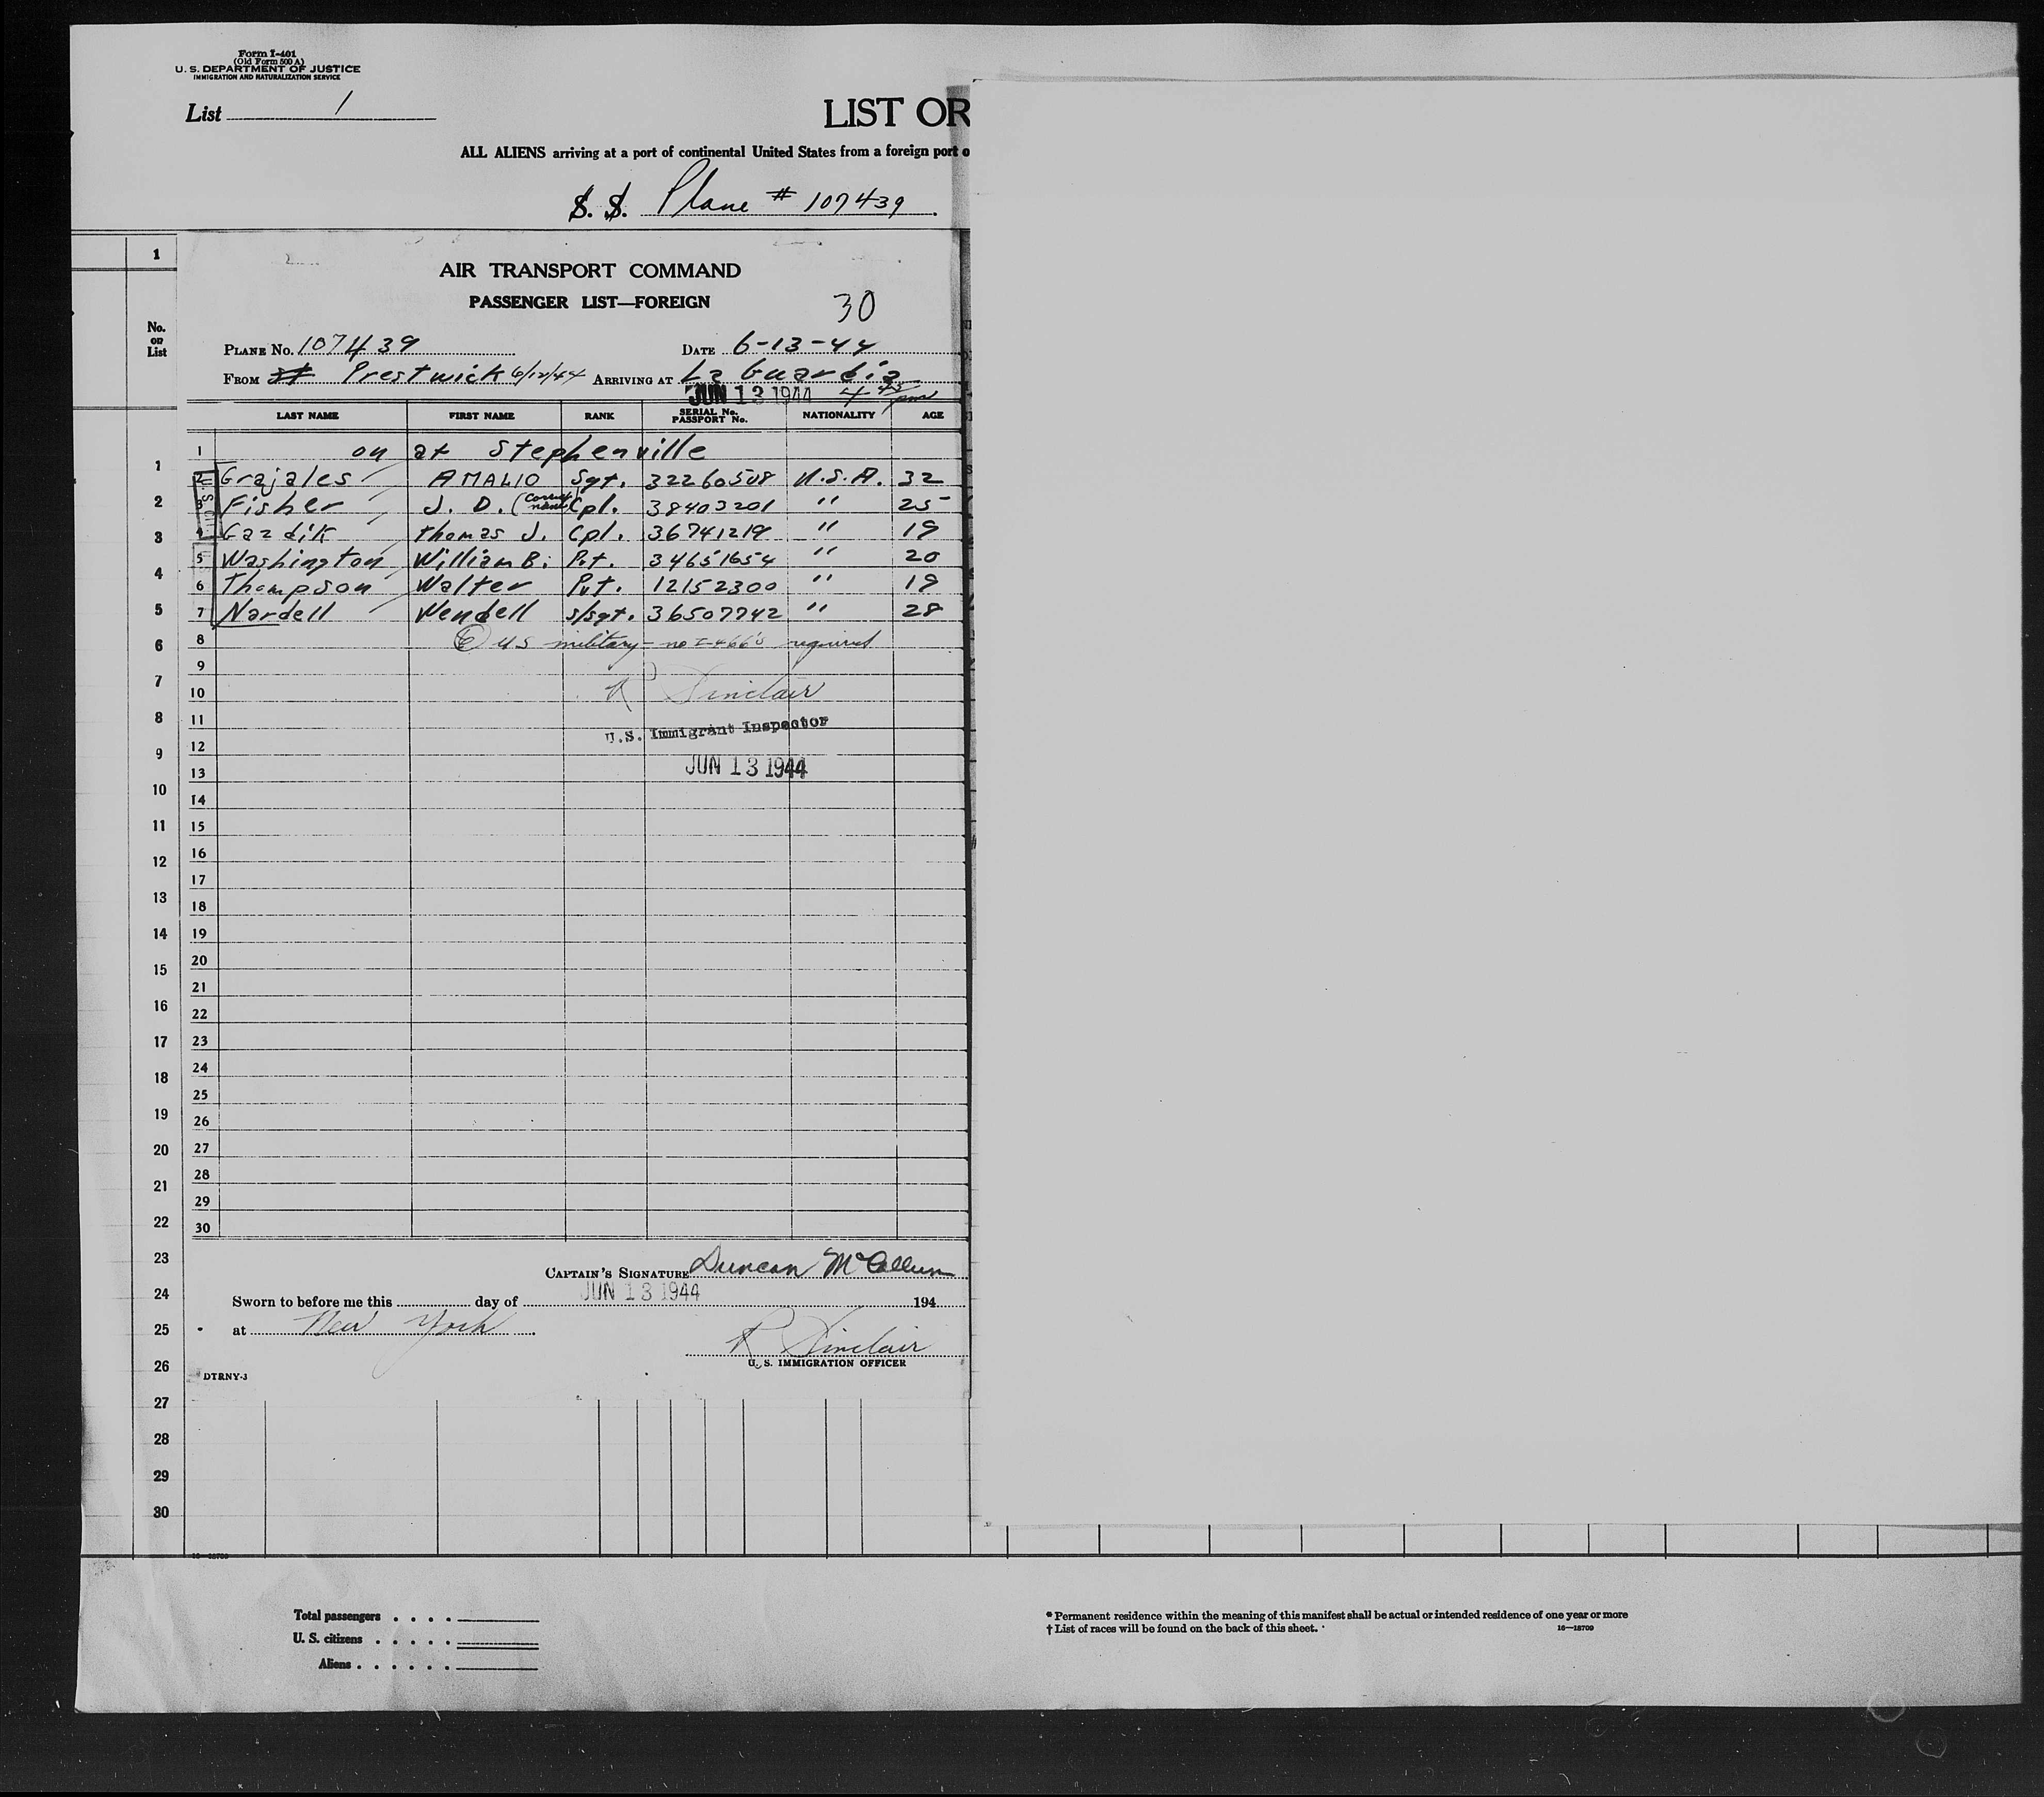 Form I-401
(Old Form 500 A)
U. S. DEPARTMENT OF JUSTICE
IMMIGRATION AND NATURALIZATION SERVICE
List 1
LIST OR
ALL ALIENS arriving at a port of continental United States from a foreign port o
S. S. Plane # 107439
1
No. on List
AIR TRANSPORT COMMAND
PASSENGER LIST—FOREIGN
30
PLANE No. 107439 DATE 6-13-44
FROM Prestwick 6/12/44 ARRIVING AT La Guardia
JUN 13 1944 4 45 pm
LAST NAME FIRST NAME RANK SERIAL No. PASSPORT No. NATIONALITY AGE
1 on at Stephenville
2 Grajales AMALIO Sgt. 32260508 U.S.A. 32
3 Fisher J. D. (correct name) Cpl. 38403201 " 25
4 Gazdik Thomas J. Cpl. 36741219 " 19
5 Washington William B. Pvt. 34651654 " 20
6 Thompson Walter Pvt. 12152300 " 19
7 Nardell Wendell S/Sgt. 36507742 " 28
8 (6) US military - no I-466's required
9
10 R Sinclair
11 U.S. Immigrant Inspector
12
13 JUN 13 1944
14
15
16
17
18
19
20
21
22
23
24
25
26
27
28
29
30
1
2
3
4
5
6
7
8
9
10
11
12
13
14
15
16
17
18
19
20
21
22
23
24
25
26
27
28
29
30
CAPTAIN'S SIGNATURE Duncan McCallum
Sworn to before me this day of JUN 13 1944 194
at New York
R Sinclair
U. S. IMMIGRATION OFFICER
DTRNY-3
16—18709
Total passengers . . . .
U. S. citizens . . . . .
Aliens . . . . . .
* Permanent residence within the meaning of this manifest shall be actual or intended residence of one year or more
† List of races will be found on the back of this sheet.
16—18709